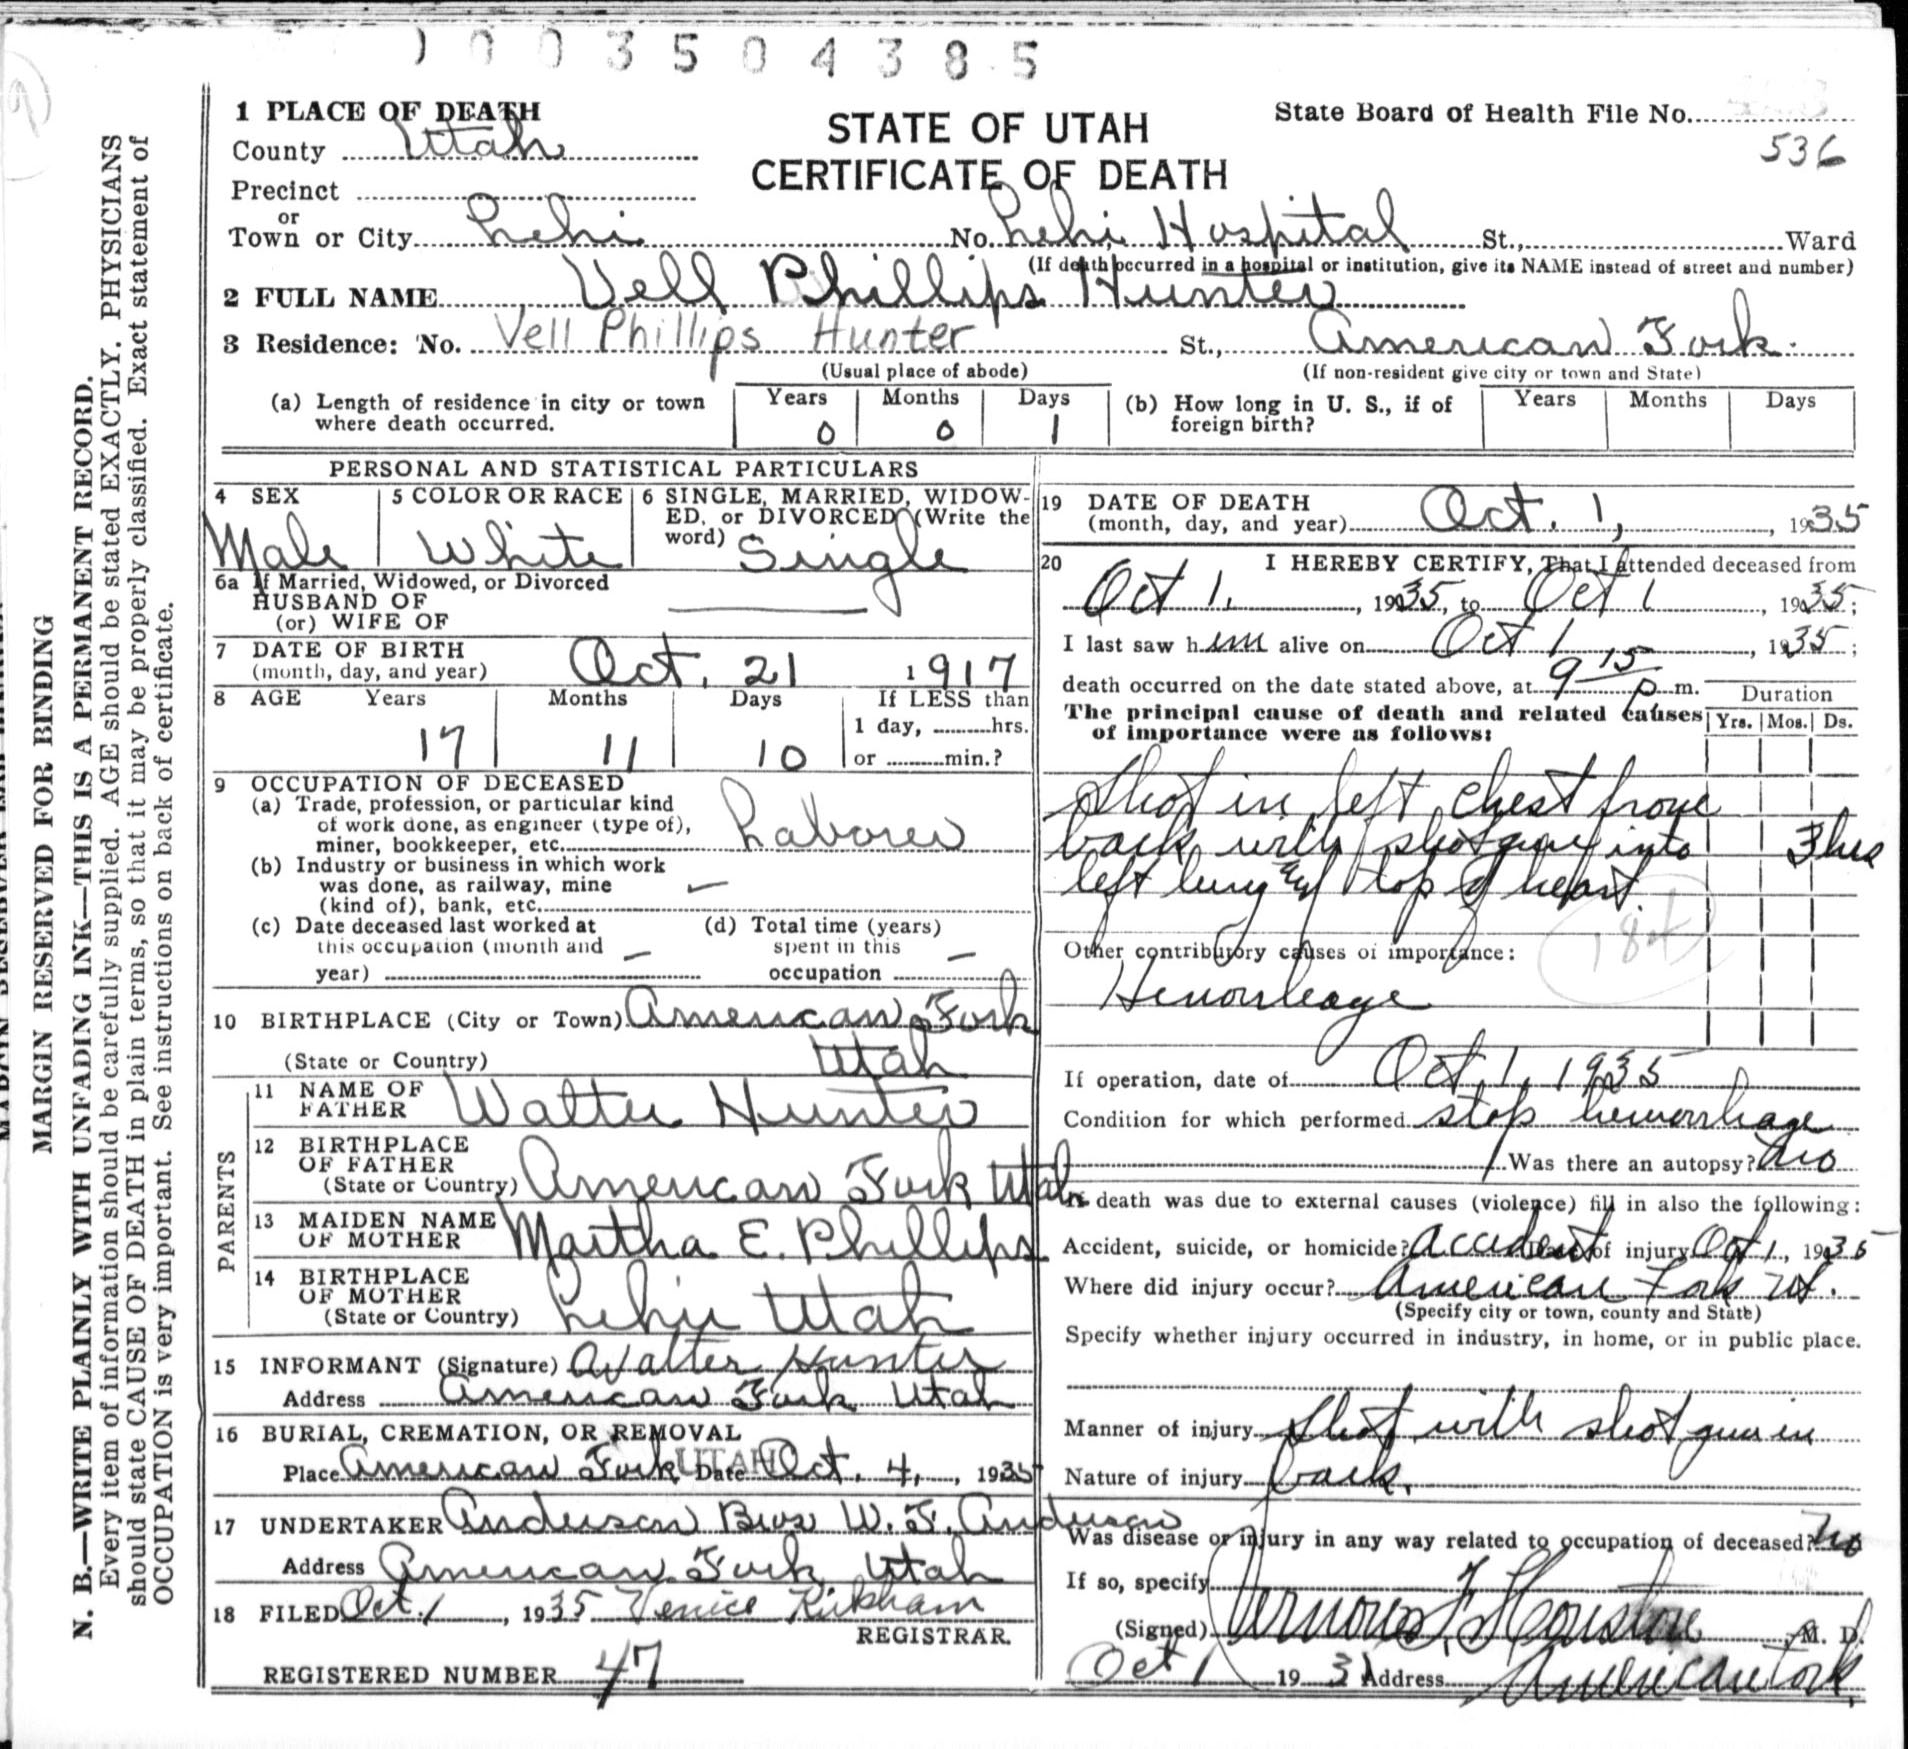 1003504385
1 PLACE OF DEATH
STATE OF UTAH
CERTIFICATE OF DEATH
State Board of Health File No.
536
County Utah
Precinct
or
Town or City Lehi No. Lehi Hospital St., Ward
(If death occurred in a hospital or institution, give its NAME instead of street and number)
2 FULL NAME Vell Phillips Hunter
3 Residence: No. Vell Phillips Hunter St., American Fork
(Usual place of abode) (If non-resident give city or town and State)
(a) Length of residence in city or town where death occurred. Years 0 Months 0 Days 1
(b) How long in U. S., if of foreign birth? Years Months Days
PERSONAL AND STATISTICAL PARTICULARS
4 SEX Male
5 COLOR OR RACE White
6 SINGLE, MARRIED, WIDOWED, or DIVORCED (Write the word) Single
6a If Married, Widowed, or Divorced
HUSBAND OF
(or) WIFE OF
7 DATE OF BIRTH
(month, day, and year) Oct. 21 1917
8 AGE Years Months Days If LESS than
1 day, hrs.
17 11 10 or min.?
9 OCCUPATION OF DECEASED
(a) Trade, profession, or particular kind
of work done, as engineer (type of),
miner, bookkeeper, etc. Laborer
(b) Industry or business in which work
was done, as railway, mine
(kind of), bank, etc.
(c) Date deceased last worked at
this occupation (month and
year)
(d) Total time (years)
spent in this
occupation
10 BIRTHPLACE (City or Town) American Fork
(State or Country) Utah
PARENTS
11 NAME OF
FATHER Walter Hunter
12 BIRTHPLACE
OF FATHER
(State or Country) American Fork Utah
13 MAIDEN NAME
OF MOTHER Martha E. Phillips
14 BIRTHPLACE
OF MOTHER
(State or Country) Lehi Utah
15 INFORMANT (Signature) Walter Hunter
Address American Fork Utah
16 BURIAL, CREMATION, OR REMOVAL
Place American Fork UTAH Date Oct. 4, 1935
17 UNDERTAKER Anderson Bros W. F. Anderson
Address American Fork Utah
18 FILED Oct. 1, 1935 Venice Kirkham
REGISTRAR.
REGISTERED NUMBER 47
19 DATE OF DEATH
(month, day, and year) Oct. 1, 1935
20 I HEREBY CERTIFY, That I attended deceased from
Oct 1, 1935, to Oct 1, 1935;
I last saw him alive on Oct 1, 1935;
death occurred on the date stated above, at 9 15 p m.
The principal cause of death and related causes
of importance were as follows:
Duration
Yrs. Mos. Ds.
Shot in left chest from
back with shotgun into 3 hrs
left lung and top of heart
184
Other contributory causes of importance:
Hemorrhage
If operation, date of Oct. 1, 1935
Condition for which performed stop hemorrhage
Was there an autopsy? No
If death was due to external causes (violence) fill in also the following:
Accident, suicide, or homicide? Accident Date of injury Oct 1, 1935
Where did injury occur? American Fork Ut.
(Specify city or town, county and State)
Specify whether injury occurred in industry, in home, or in public place.
Manner of injury Shot with shotgun in
Nature of injury back.
Was disease or injury in any way related to occupation of deceased? No
If so, specify
(Signed) Vernon F. Houston, M. D.
Oct 1 1931 Address American Fork.
MARGIN RESERVED FOR BINDING
N. B.—WRITE PLAINLY WITH UNFADING INK—THIS IS A PERMANENT RECORD.
Every item of information should be carefully supplied. AGE should be stated EXACTLY. PHYSICIANS
should state CAUSE OF DEATH in plain terms, so that it may be properly classified. Exact statement of
OCCUPATION is very important. See instructions on back of certificate.